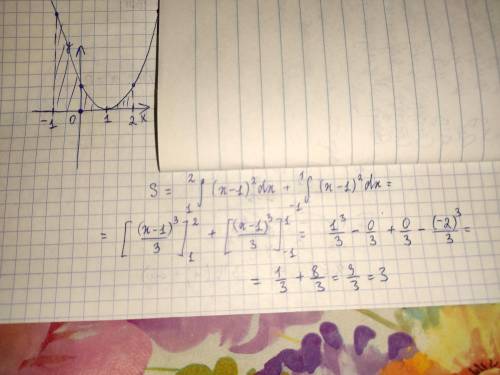 y
-1 0 1 2 x
S = ₁²∫ (x-1)² dx + ₋₁¹∫ (x-1)² dx =
= [(x-1)³/3]₁² + [(x-1)³/3]₋₁¹ = 1³/3 - 0/3 + 0/3 - (-2)³/3 =
= 1/3 + 8/3 = 9/3 = 3